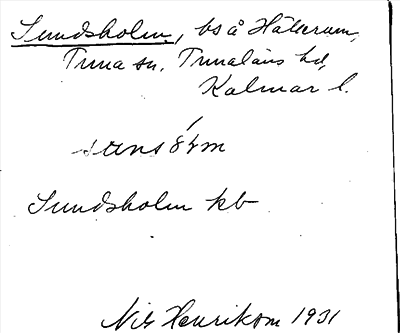 Sundsholm, bs å Hälserum,
Tuna sn. Tunaläns hd,
Kalmar l.
Sundsholm kb
Nils Henrikson 1931